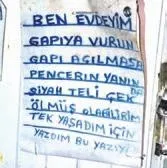 BEN EVDEYİM
GAPIYA VURUN
GAPI AÇILMASA
PENCERİN YANINDA
SİYAH TELİ ÇEK
ÖLMÜŞ OLABİLİRİM
TEK YAŞADIM İÇİN
YAZDIM BU YAZIYI